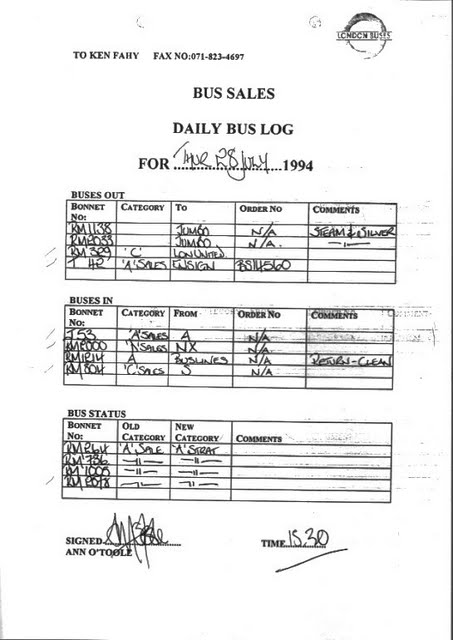 LONDON BUSES
TO KEN FAHY FAX NO:071-823-4697
BUS SALES
DAILY BUS LOG
FOR THUR 28 JULY 1994
BUSES OUT
BONNET NO: CATEGORY TO ORDER NO COMMENTS
RM1138 JUMBO N/A STEAM & SILVER
RM2033 JUMBO N/A. —"—
RM 329 'C' LON UNITED
T 42 'A' SALES ENSIGN BS114560
BUSES IN
BONNET NO: CATEGORY FROM ORDER NO COMMENTS
T53 'A' SALES A N/A
RM2000 'A' SALES NX N/A
RM1214 A BUSLINES N/A RETURN-CLEAN
RM804 'C' SALES S N/A
BUS STATUS
BONNET NO: OLD CATEGORY NEW CATEGORY COMMENTS
RM264 'A' SALE 'A' STRAT
RM 736 —"— —"—
RM 1005 —"— —"—
RM 2078 —"— —"—
SIGNED
ANN O'TOOLE
TIME 15.30